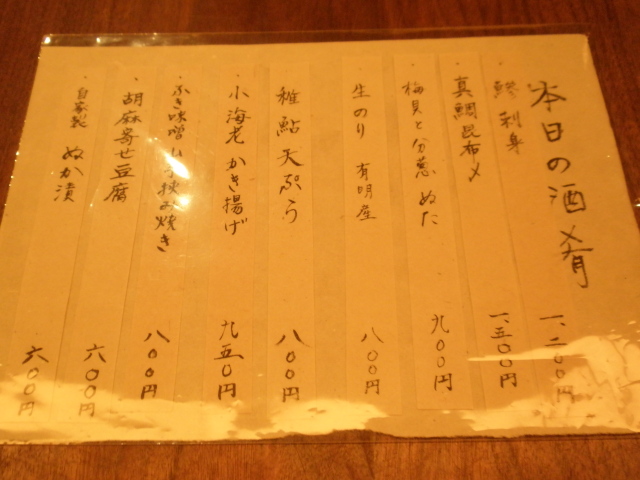 本日の酒肴
・鯵 刺身 一、二〇〇円
・真鯛昆布〆 一、三〇〇円
・梅貝と分葱 ぬた 九〇〇円
・生のり 有明産 八〇〇円
・稚鮎 天ぷら 八〇〇円
・小海老 かき揚げ 九五〇円
・ふき味噌 挟み焼き 八〇〇円
・胡麻寄せ豆腐 六〇〇円
・自家製 ぬか漬 六〇〇円